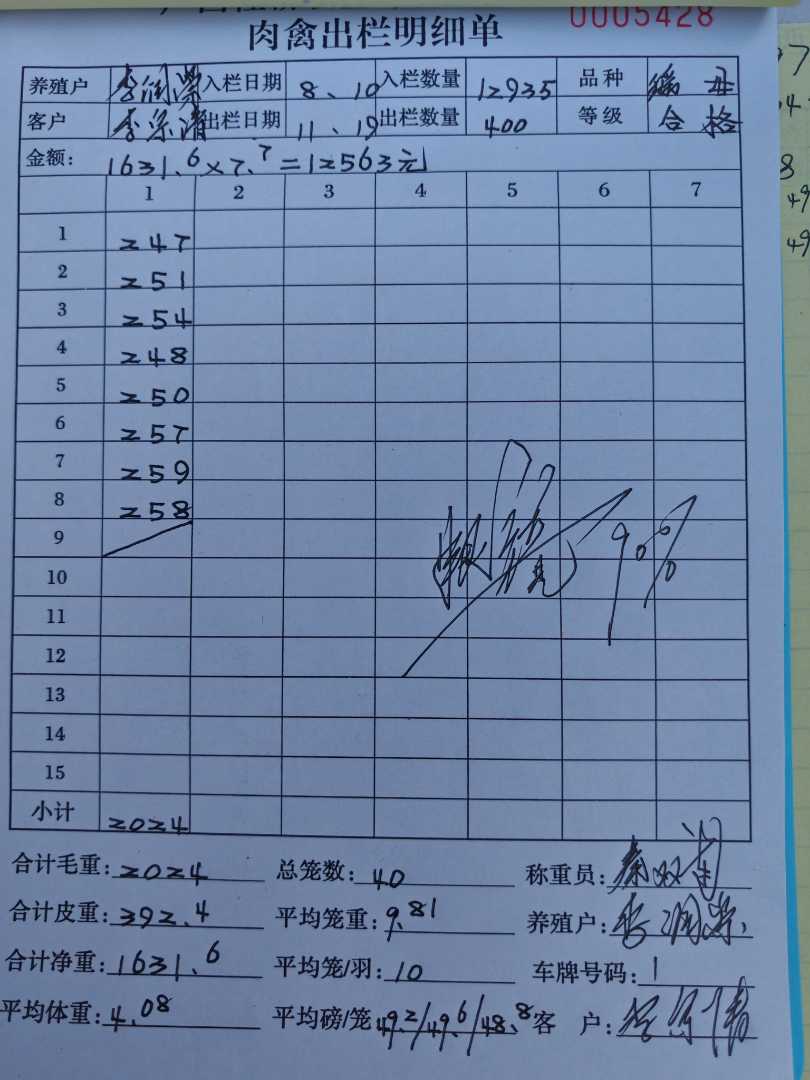 0005428
肉禽出栏明细单
养殖户 李润荣 入栏日期 8、10 入栏数量 12935 品种
客户 出栏日期 11、19 出栏数量 400 等级 合格
金额: 1631.6×7.7=12563元
1 2 3 4 5 6 7
1 247
2 251
3 254
4 248
5 250
6 257
7 259
8 258
9
10
11
12
13
14
15
小计 2024
90%
合计毛重: 2024 总笼数: 40 称重员:
合计皮重: 392.4 平均笼重: 9.81 养殖户: 李润荣
合计净重: 1631.6 平均笼/羽: 10 车牌号码: 1
平均体重: 4.08 平均磅/笼 49.2/49.6/48.8 客 户: